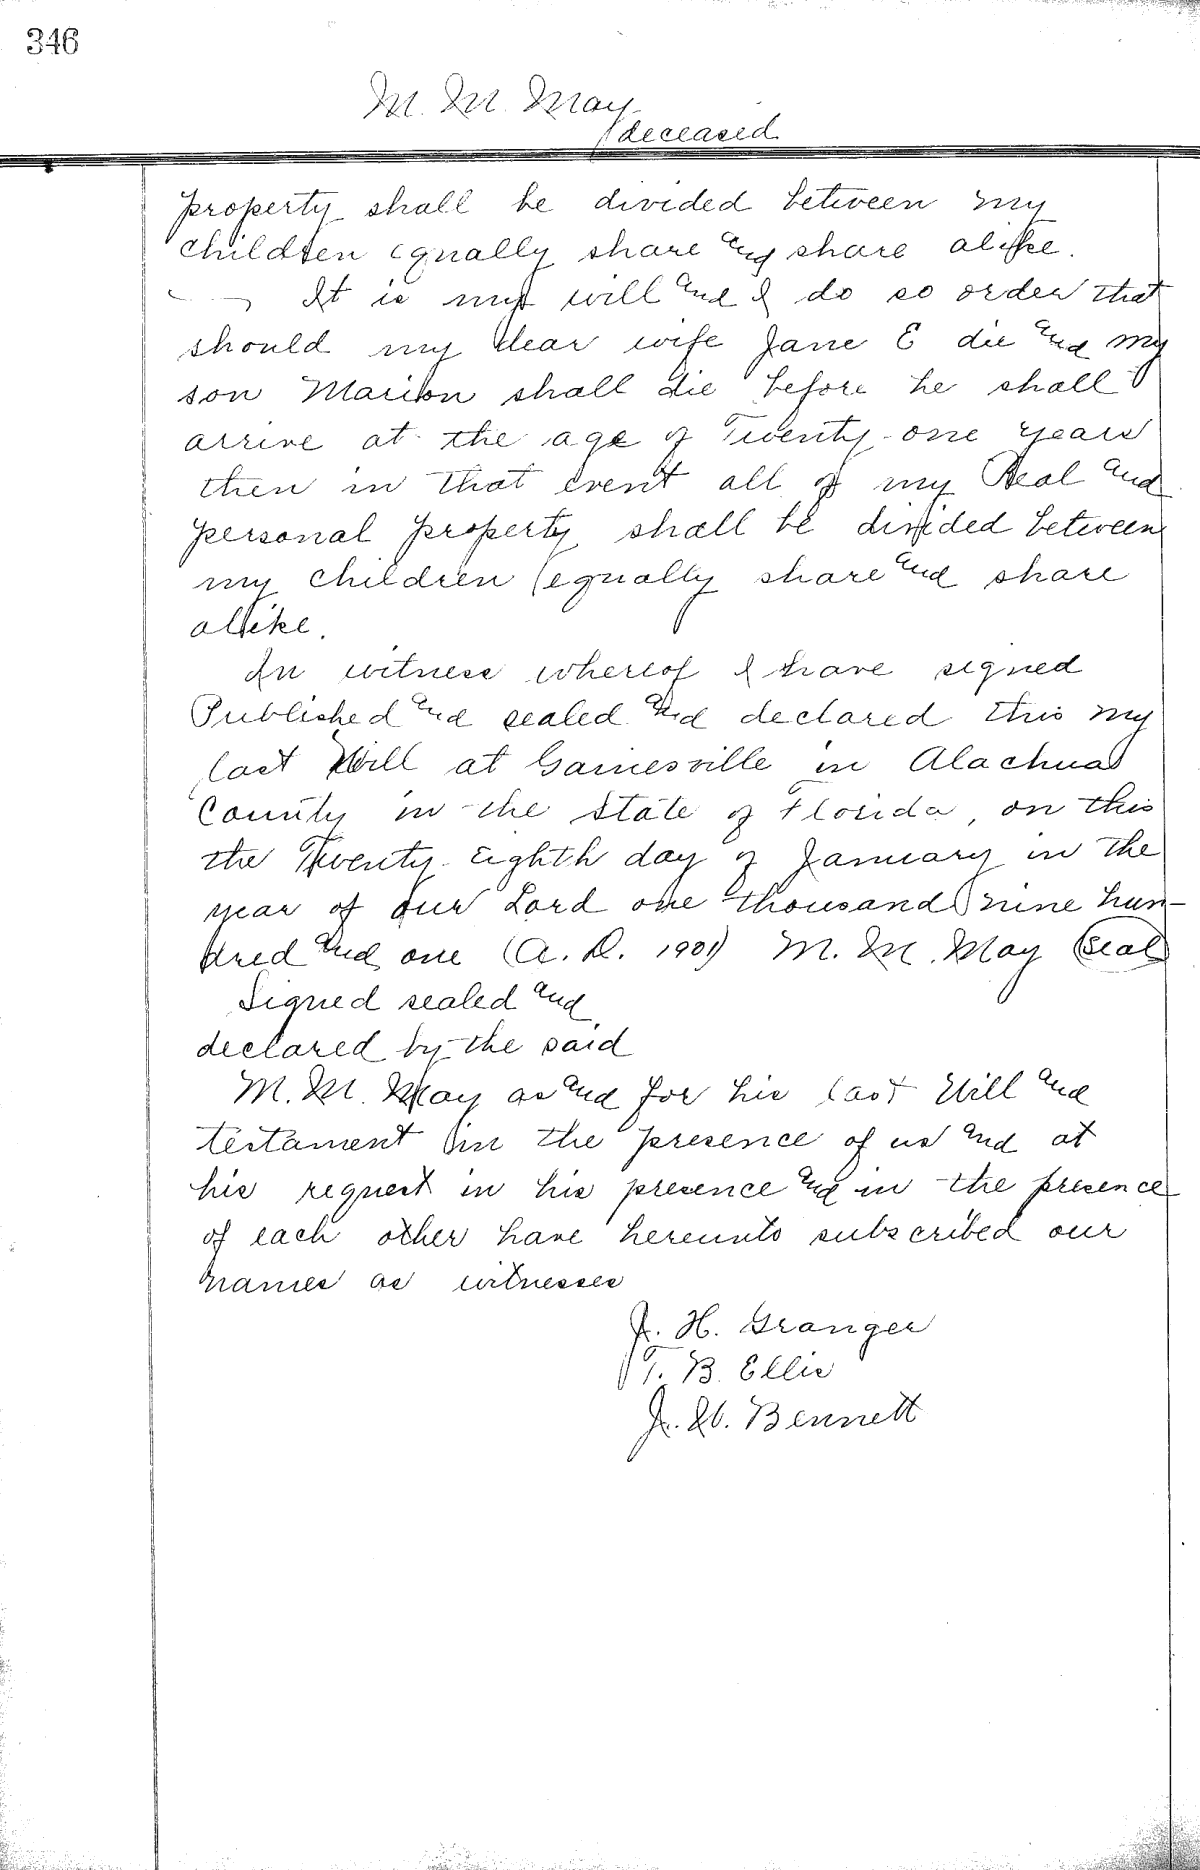 346
M. M. May
deceased
property shall be divided between my
children equally share and share alike.
It is my will and I do so order that
should my dear wife Jane E die and my
son Marion shall die before he shall
arrive at the age of Twenty-one years
then in that event all of my Real and
personal property shall be divided between
my children equally share and share
alike.
In witness whereof I have signed
Published and sealed and declared this my
last Will at Gainesville in Alachua
County in the State of Florida, on this
the Twenty-Eighth day of January in the
year of our Lord one thousand nine hun-
dred and one (A. D. 1901) M. M. May Seal
Signed sealed and
declared by the said
M. M. May as and for his last Will and
testament in the presence of us and at
his request in his presence and in the presence
of each other have hereunto subscribed our
names as witnesses
J. H. Granger
T. B. Ellis
J. W. Bennett